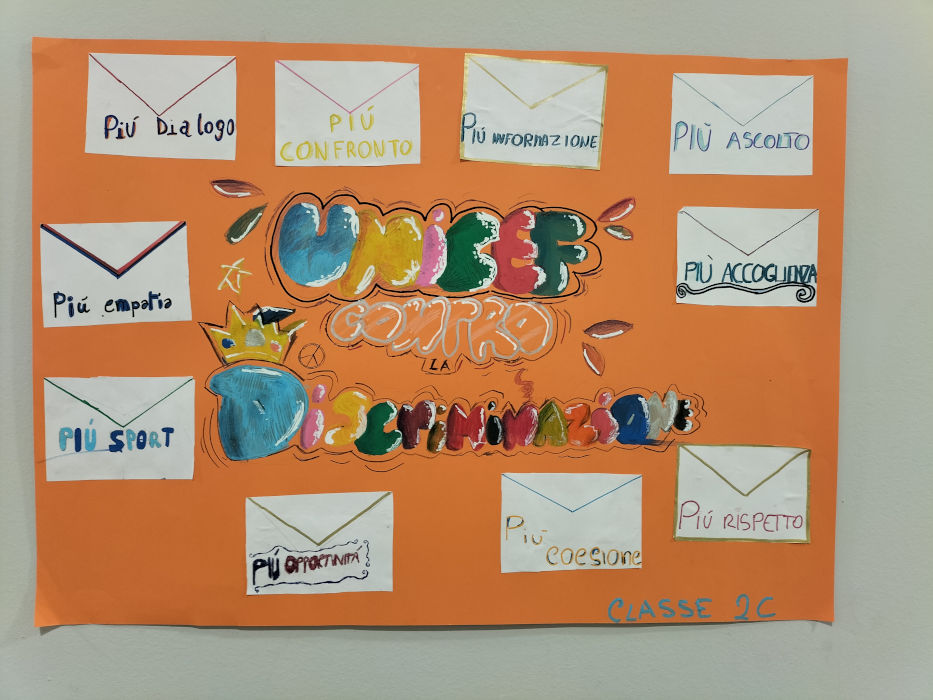 Più Dialogo
PIÚ
CONFRONTO
PIÚ INFORMAZIONE
PIÙ ASCOLTO
UNICEF
PIÙ ACCOGLIENZA
Più empatia
CONTRO
LA
DiSCRiMiNAZiONE
PIÚ SPORT
PIÚ RISPETTO
PIÚ OPPORTUNITÁ
Più
COESIONE
CLASSE 2C